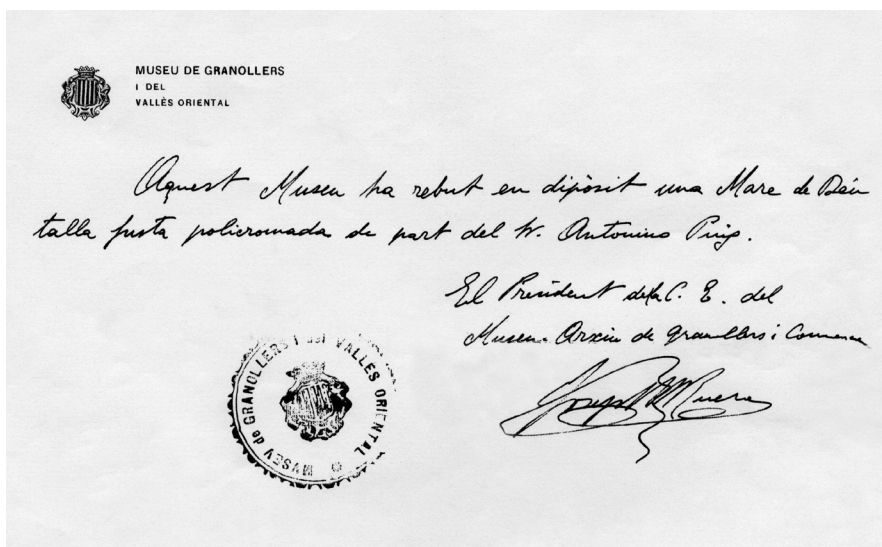 MUSEU DE GRANOLLERS
I DEL
VALLÈS ORIENTAL
Aquest Museu ha rebut en dipòsit una Mare de Déu
talla fusta policromada de part del Sr. Antonino Puig.
El President de la C. E. del
Museu-Arxiu de Granollers i Comarca
MVSEV de GRANOLLERS i del VALLES ORIENTAL